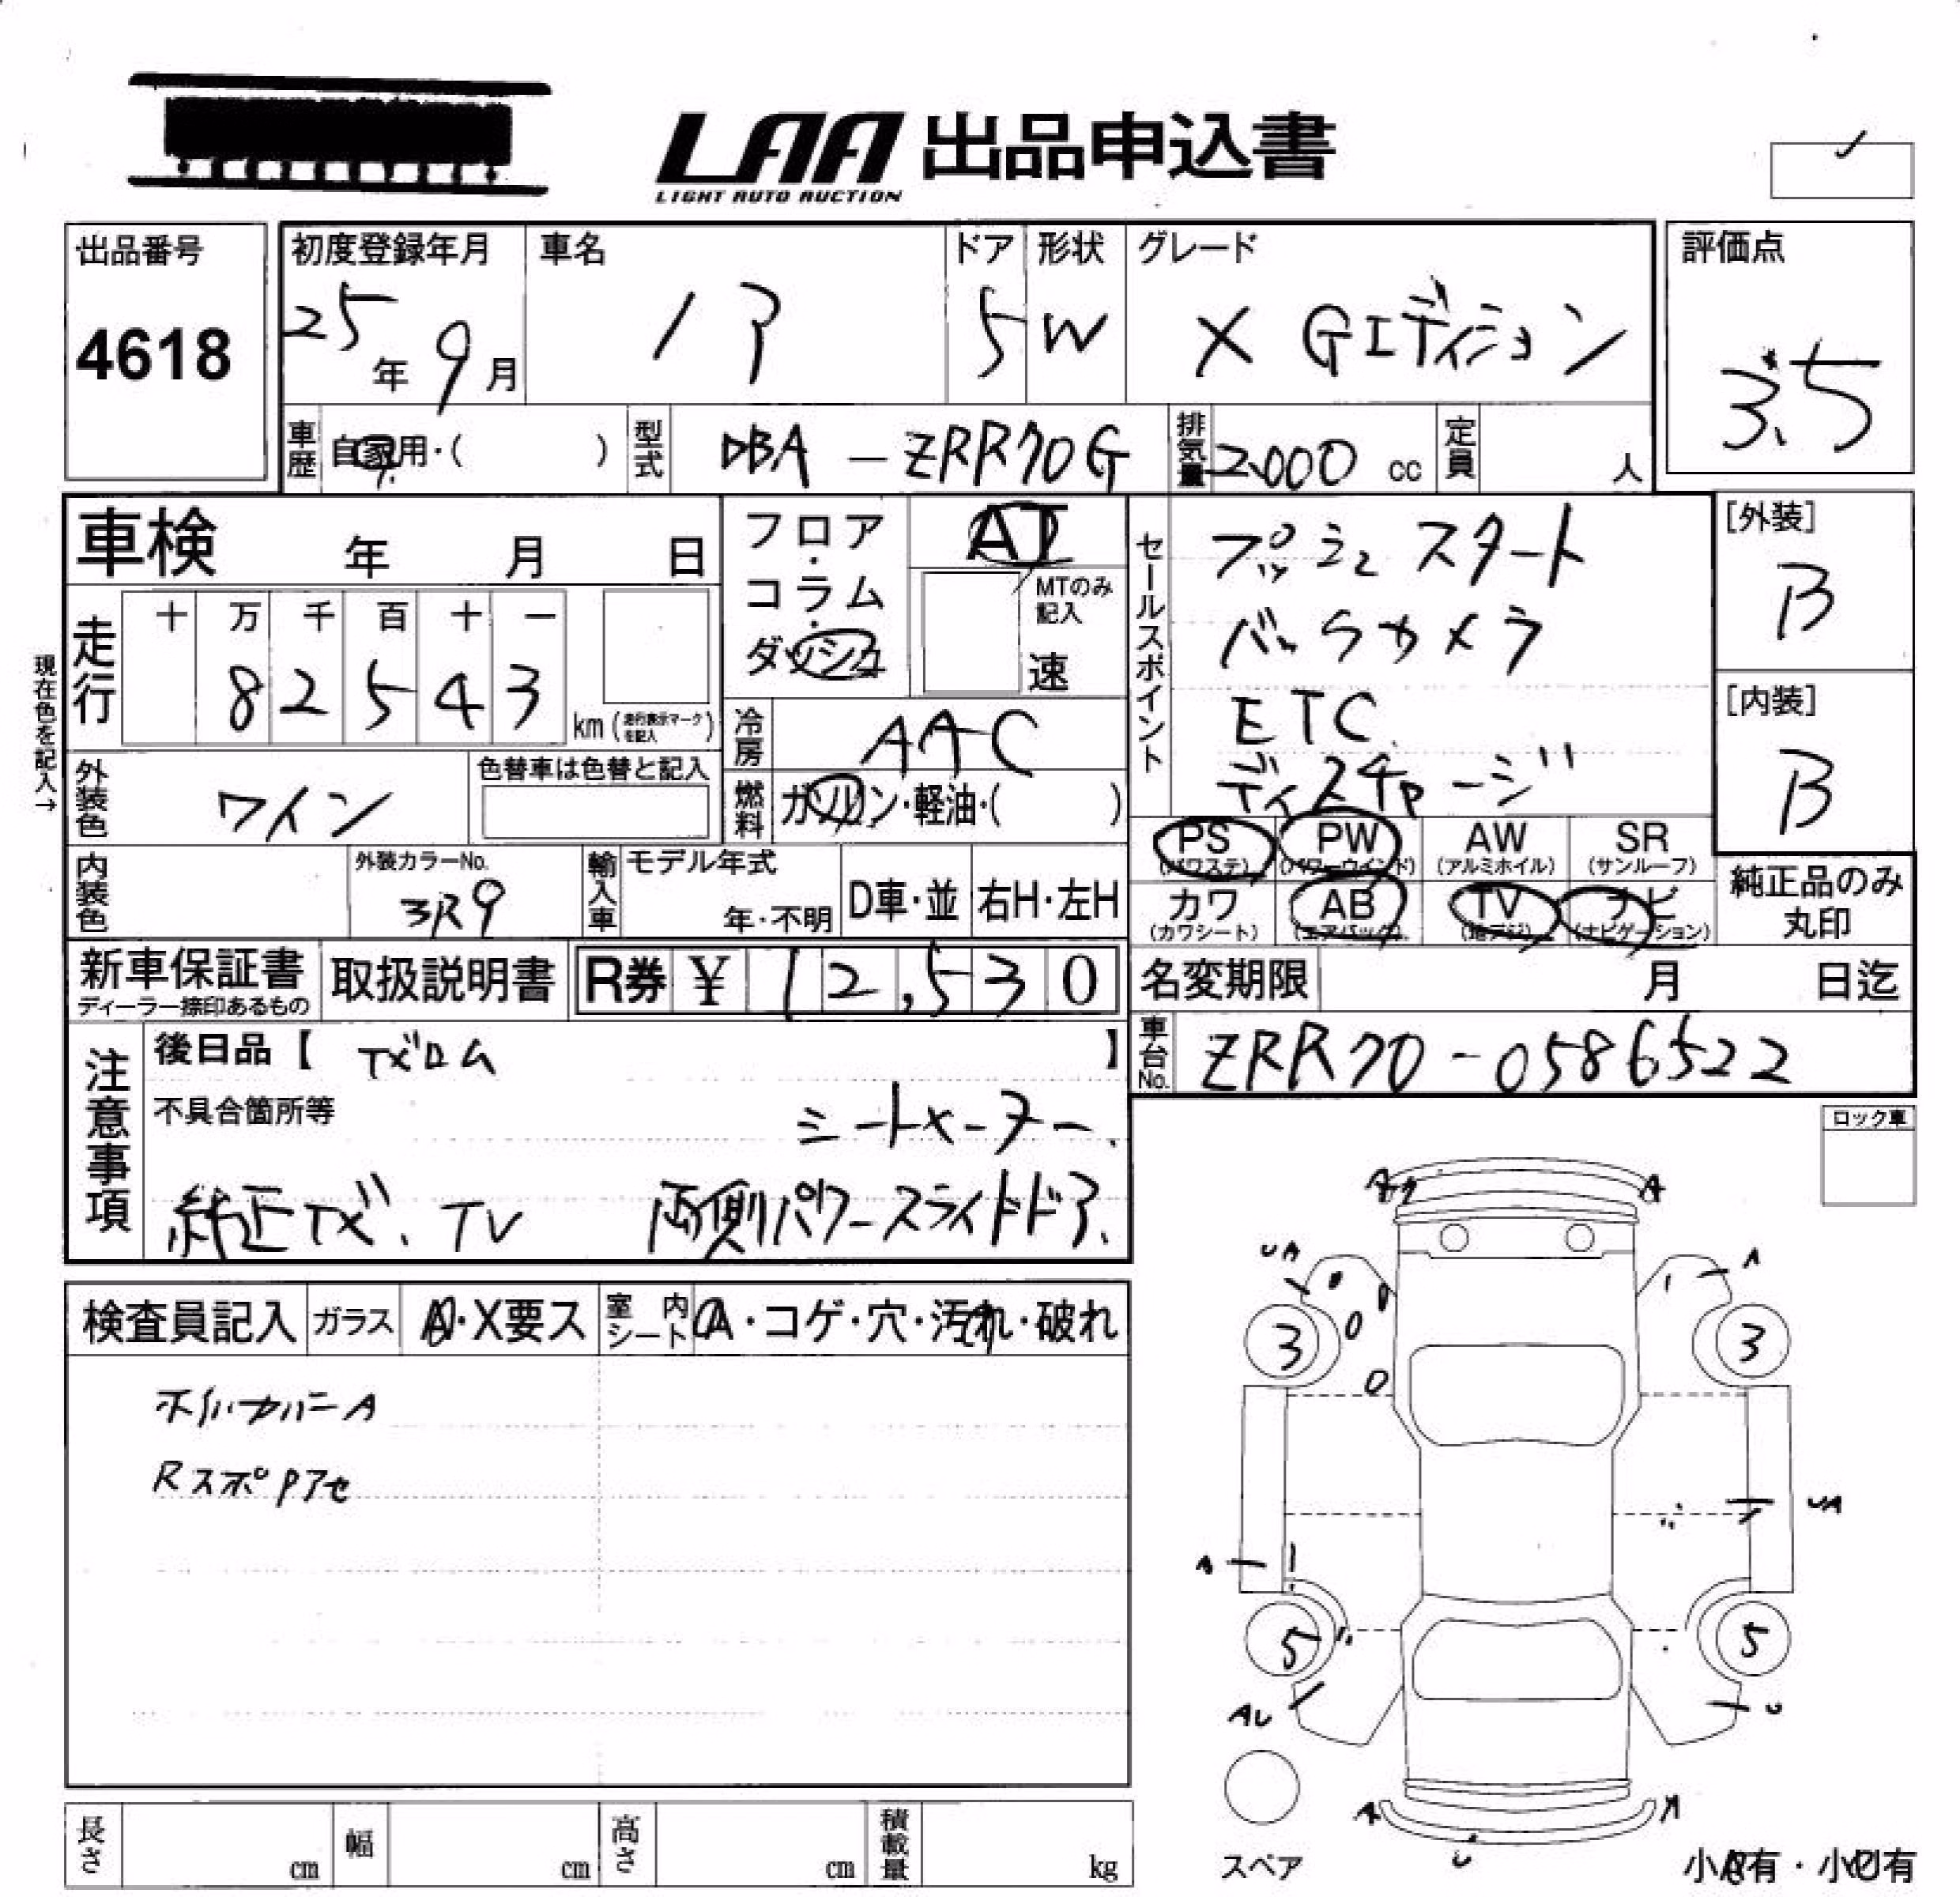 LAA 出品申込書
LIGHT AUTO AUCTION
出品番号
4618
初度登録年月
25年9月
車名
ノア
ドア
5
形状
W
グレード
X Gエディション
評価点
3.5
車歴
自家用・( )
型式
DBA-ZRR70G
排気量
2000 cc
定員
人
車検 年 月 日
フロア・コラム・ダッシュ
AT
MTのみ記入
速
セールスポイント
プッシュスタート
バックカメラ
ETC
ディスチャージ
[外装]
B
[内装]
B
現在色を記入→
走行
十 万 千 百 十 一
8 2 5 4 3
km (走行表示マークを記入)
冷房
AAC
燃料
ガソリン・軽油・( )
外装色
ワイン
色替車は色替と記入
内装色
外装カラーNo.
3R9
輸入車
モデル年式
年・不明
D車・並
右H・左H
PS (パワステ)
PW (パワーウインド)
AW (アルミホイル)
SR (サンルーフ)
カワ (カワシート)
AB (エアバック)
TV (地デジ)
ナビ (ナビゲーション)
純正品のみ丸印
新車保証書
ディーラー捺印あるもの
取扱説明書
R券 ¥ 12,530
名変期限 月 日迄
車台No.
ZRR70-0586522
注意事項
後日品【 】
不具合箇所等
シートメーカー.
純正 TV
両側パワースライドドア.
ロック車
検査員記入
ガラス
A・X要ス
室内シート
A・コゲ・穴・汚れ・破れ
ホイルカバーA
Rスポ
A
A
UA
A
3
3
UA
A
5
5
AU
U
A
A
U
スペア
小A有・小U有
長さ cm
幅 cm
高さ cm
積載量 kg